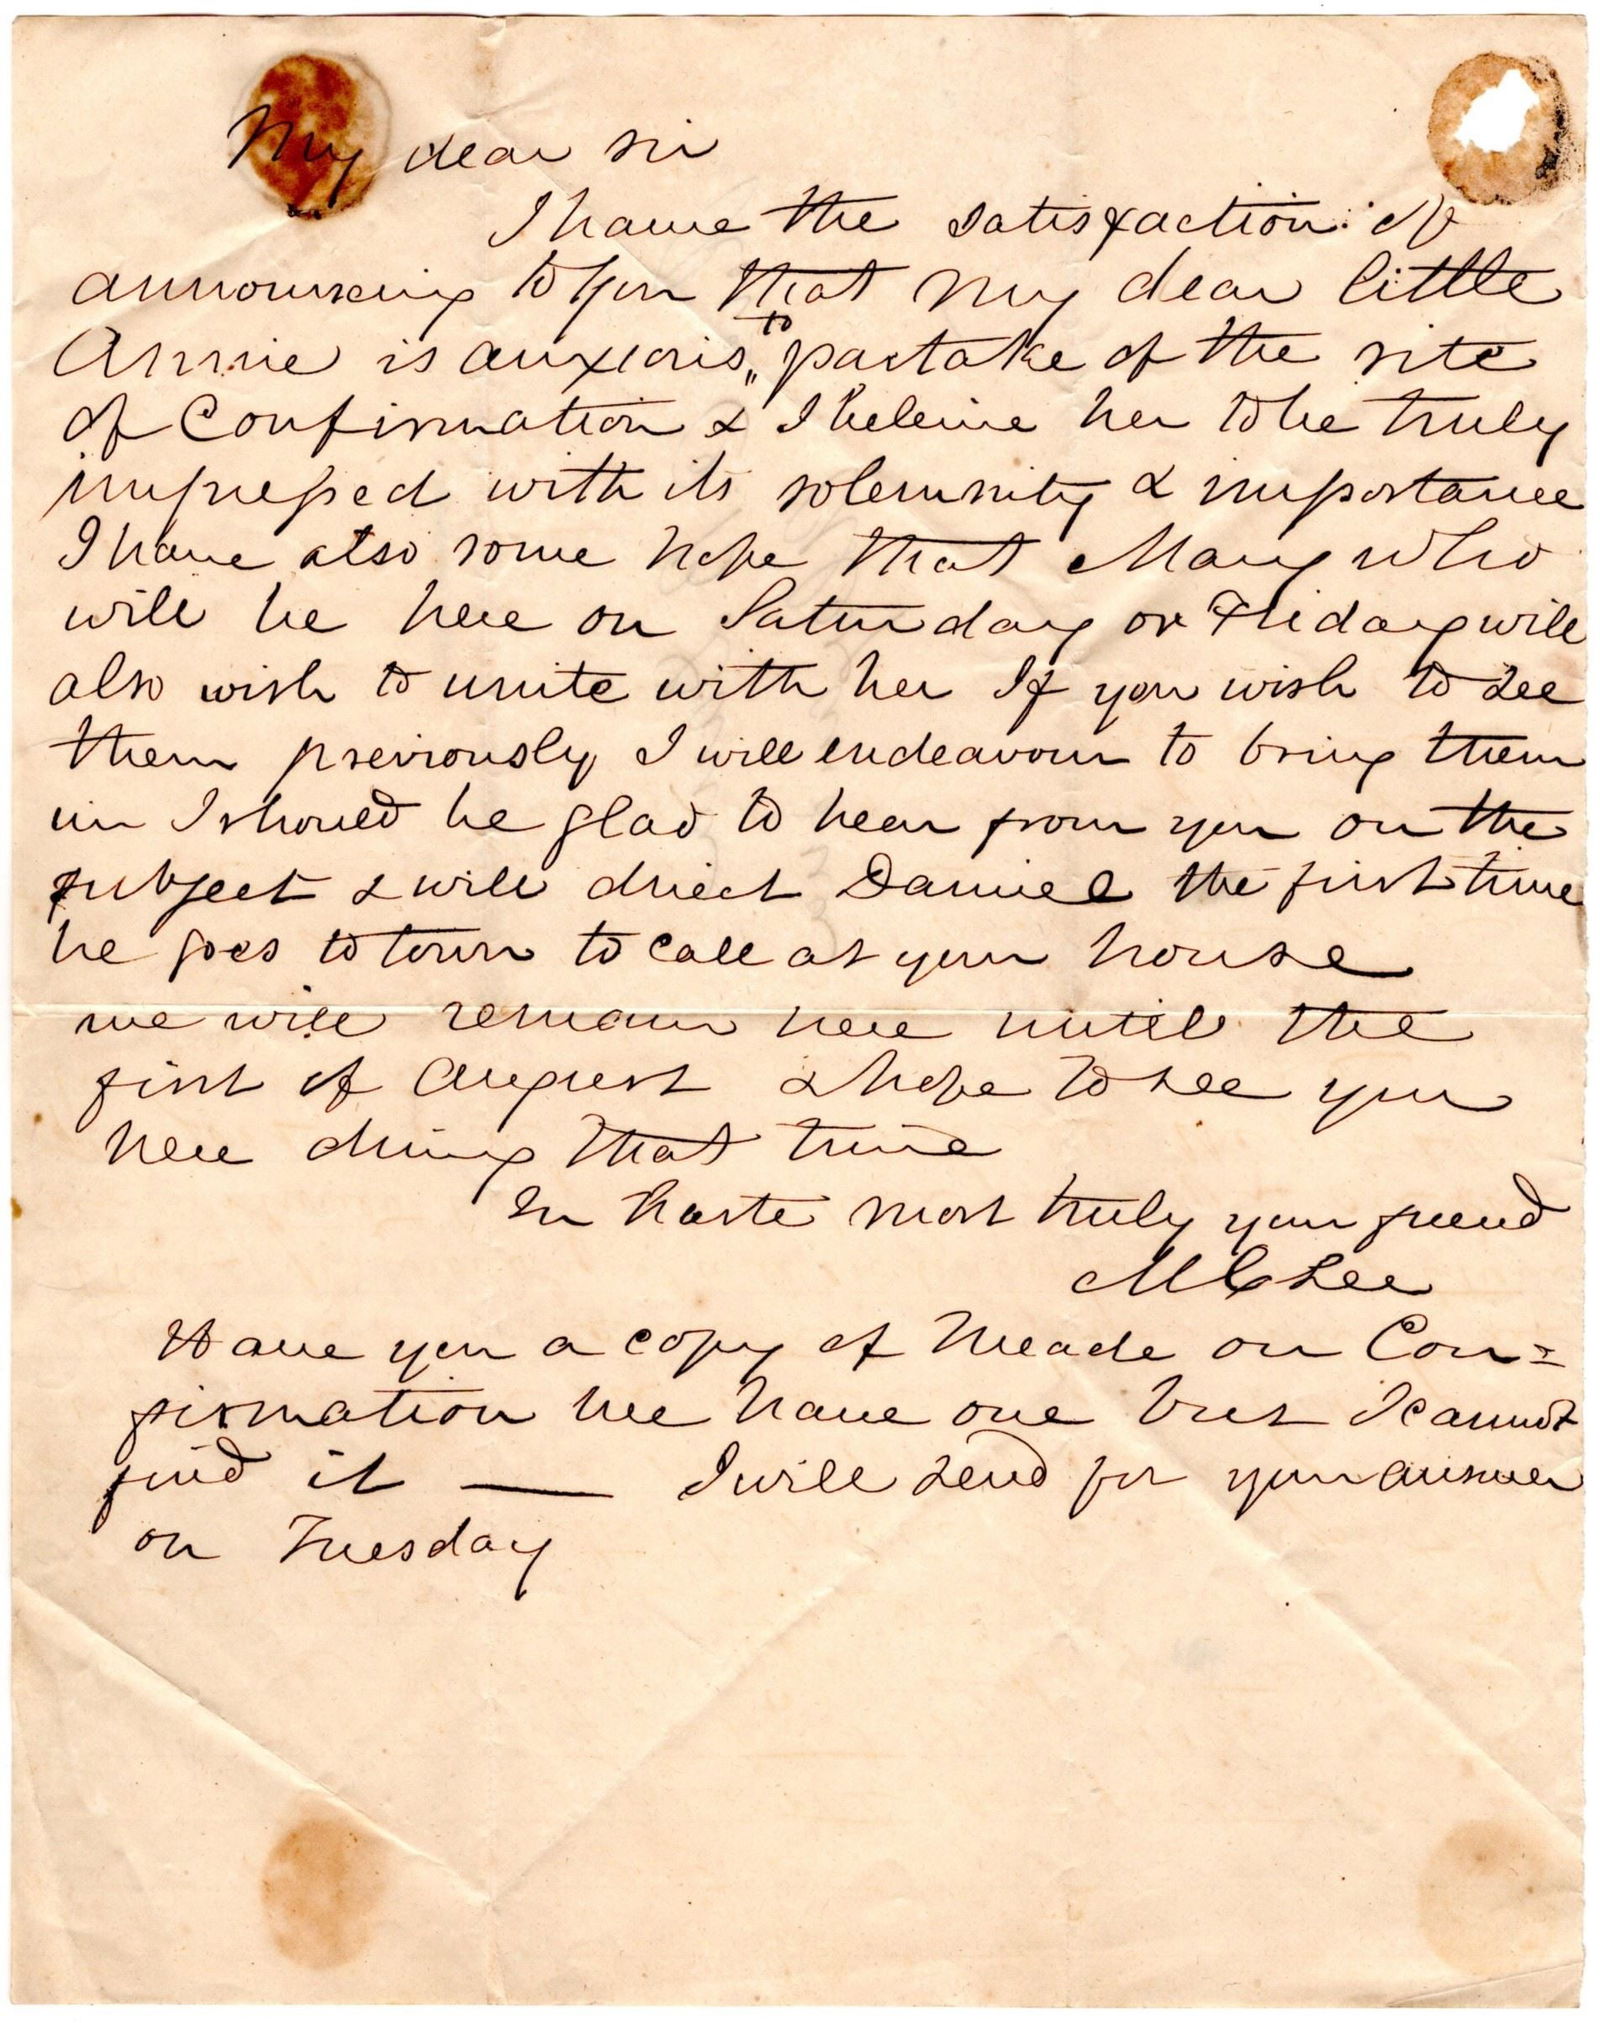 My dear sir
I have the satisfaction of
announcing to you that my dear little
Annie is anxious to partake of the rite
of Confirmation & I beleive her to be truly
impressed with its solemnity & importance
I have also some hope that Mary who
will be here on Saturday or Friday will
also wish to unite with her If you wish to see
them previously I will endeavour to bring them
in I should be glad to hear from you on the
subject & will direct Daniel the first time
he goes to town to call at your house
we will remain here until the
first of August & hope to see you
here during that time
In haste most truly your friend
M C Lee
Have you a copy of Meade on Con=
firmation We have one but I cannot
find it — I will send for your answer
on Tuesday